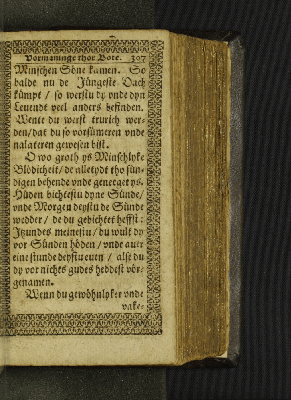 Vormaninge thor Bote. 307
Minschen Söne kamen. So
balde nu de Jüngeste Dach
kümpt / so werstu dy vnde dyn
Leuendt veel anders befinden.
Wente du werst trurich wer-
den / dat du so vorsümeren vnde
nalateren gewesen bist.
O wo groth ys Minschlyke
Blödicheit / de alletydt tho sün-
digen behende vnde geneget ys.
Hüden bichtestu dyne Sünde /
vnde Morgen deystu de Sünde
wedder / de du gebichtet heffst:
Jtzundes meinestu / du wult dy
vor Sünden höden / vnde auer
eine stunde deystu euen / alse du
dy vor nichtes gudes heddest vör-
genamen.
Wenn du gewöhnlyker vnde
vake-